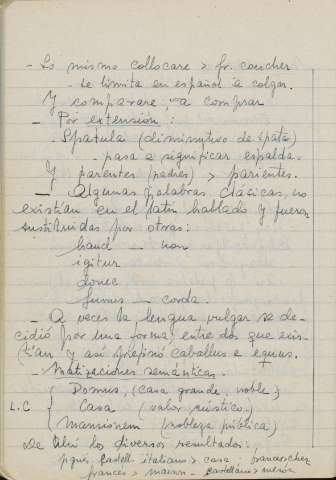 - Lo mismo collocare > fr. coucher
- se limita en español a colgar.
Y comparare, a comprar
- Por extensión:
- Spatula (diminutivo de spata)
- pasa a significar espalda.
Y parientes (padres) > parientes.
- Algunas palabras clásicas, no
existían en el latín hablado y fueron
sustituidas por otras:
haud — non
igitur
donec
funus — corda.
- A veces la lengua vulgar se de-
cidió por una forma, entre dos que exis-
tían y así prefirió caballus a equus.
- Matizaciones semánticas.
Domus, (casa grande, noble)
L.C { Casa (valor rústico.)
Mansionem (pobleza pública)
De ahí los diversos resultados:
castell. italiano > casa:
francés > maison - castellano >